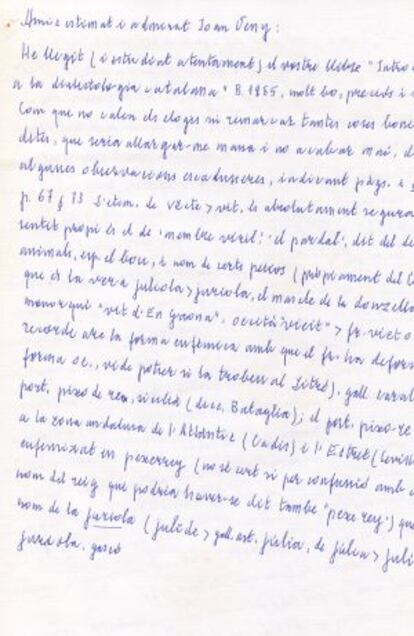 Amic estimat i admirat Joan Veny:
He llegit (i estudiat atentament) el vostre llibre "Intro
a la dialectologia catalana" B. 1985, molt bo, precís i
Com que no calen els elogis ni remarcar tantes coses bones
dites, que seria allargar-me massa i no acabar mai, d
algunes observacions escadusseres, indicant pàgs. i
p. 67 § 73 L'etim. de vĕcte > vit, és absolutament segura
sentit propi és el de 'membre viril': 'el pardal', dit del de
animals, esp. el bou, i nom de certs peixos (pròpiament del
que és la vera juliola > juriola, el mascle de la donzella
menorquí "vit d'En Gaona". occità "viech" > fr.
recordo ara la forma eufèmica amb que el fr. ha defor
forma oc., vide potser si la trobeu al Litré). gall. caral
port. pixo de rem, sicilià (dicc. Bataglia); el port. pixo-re
a la zona andalusa de l'Atlàntic (Cadis) i l'Estret (Sevill
eufemitzat en pexerrey (no sé cert si per confusió amb
nom del reig que podria haver-se dit també "pexe rey") que
nom de la juriola (julĭde > gall. ast. júlia, de júlia > juli
jurdola, gascó